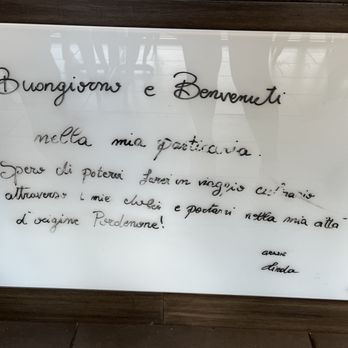 Buongiorno e Benvenuti
nella mia pasticceria.
Spero di potervi farvi un viaggio
attraverso i miei dolci e portarvi nella mia città
d'origine Pordenone!
GRAZIE
Linda